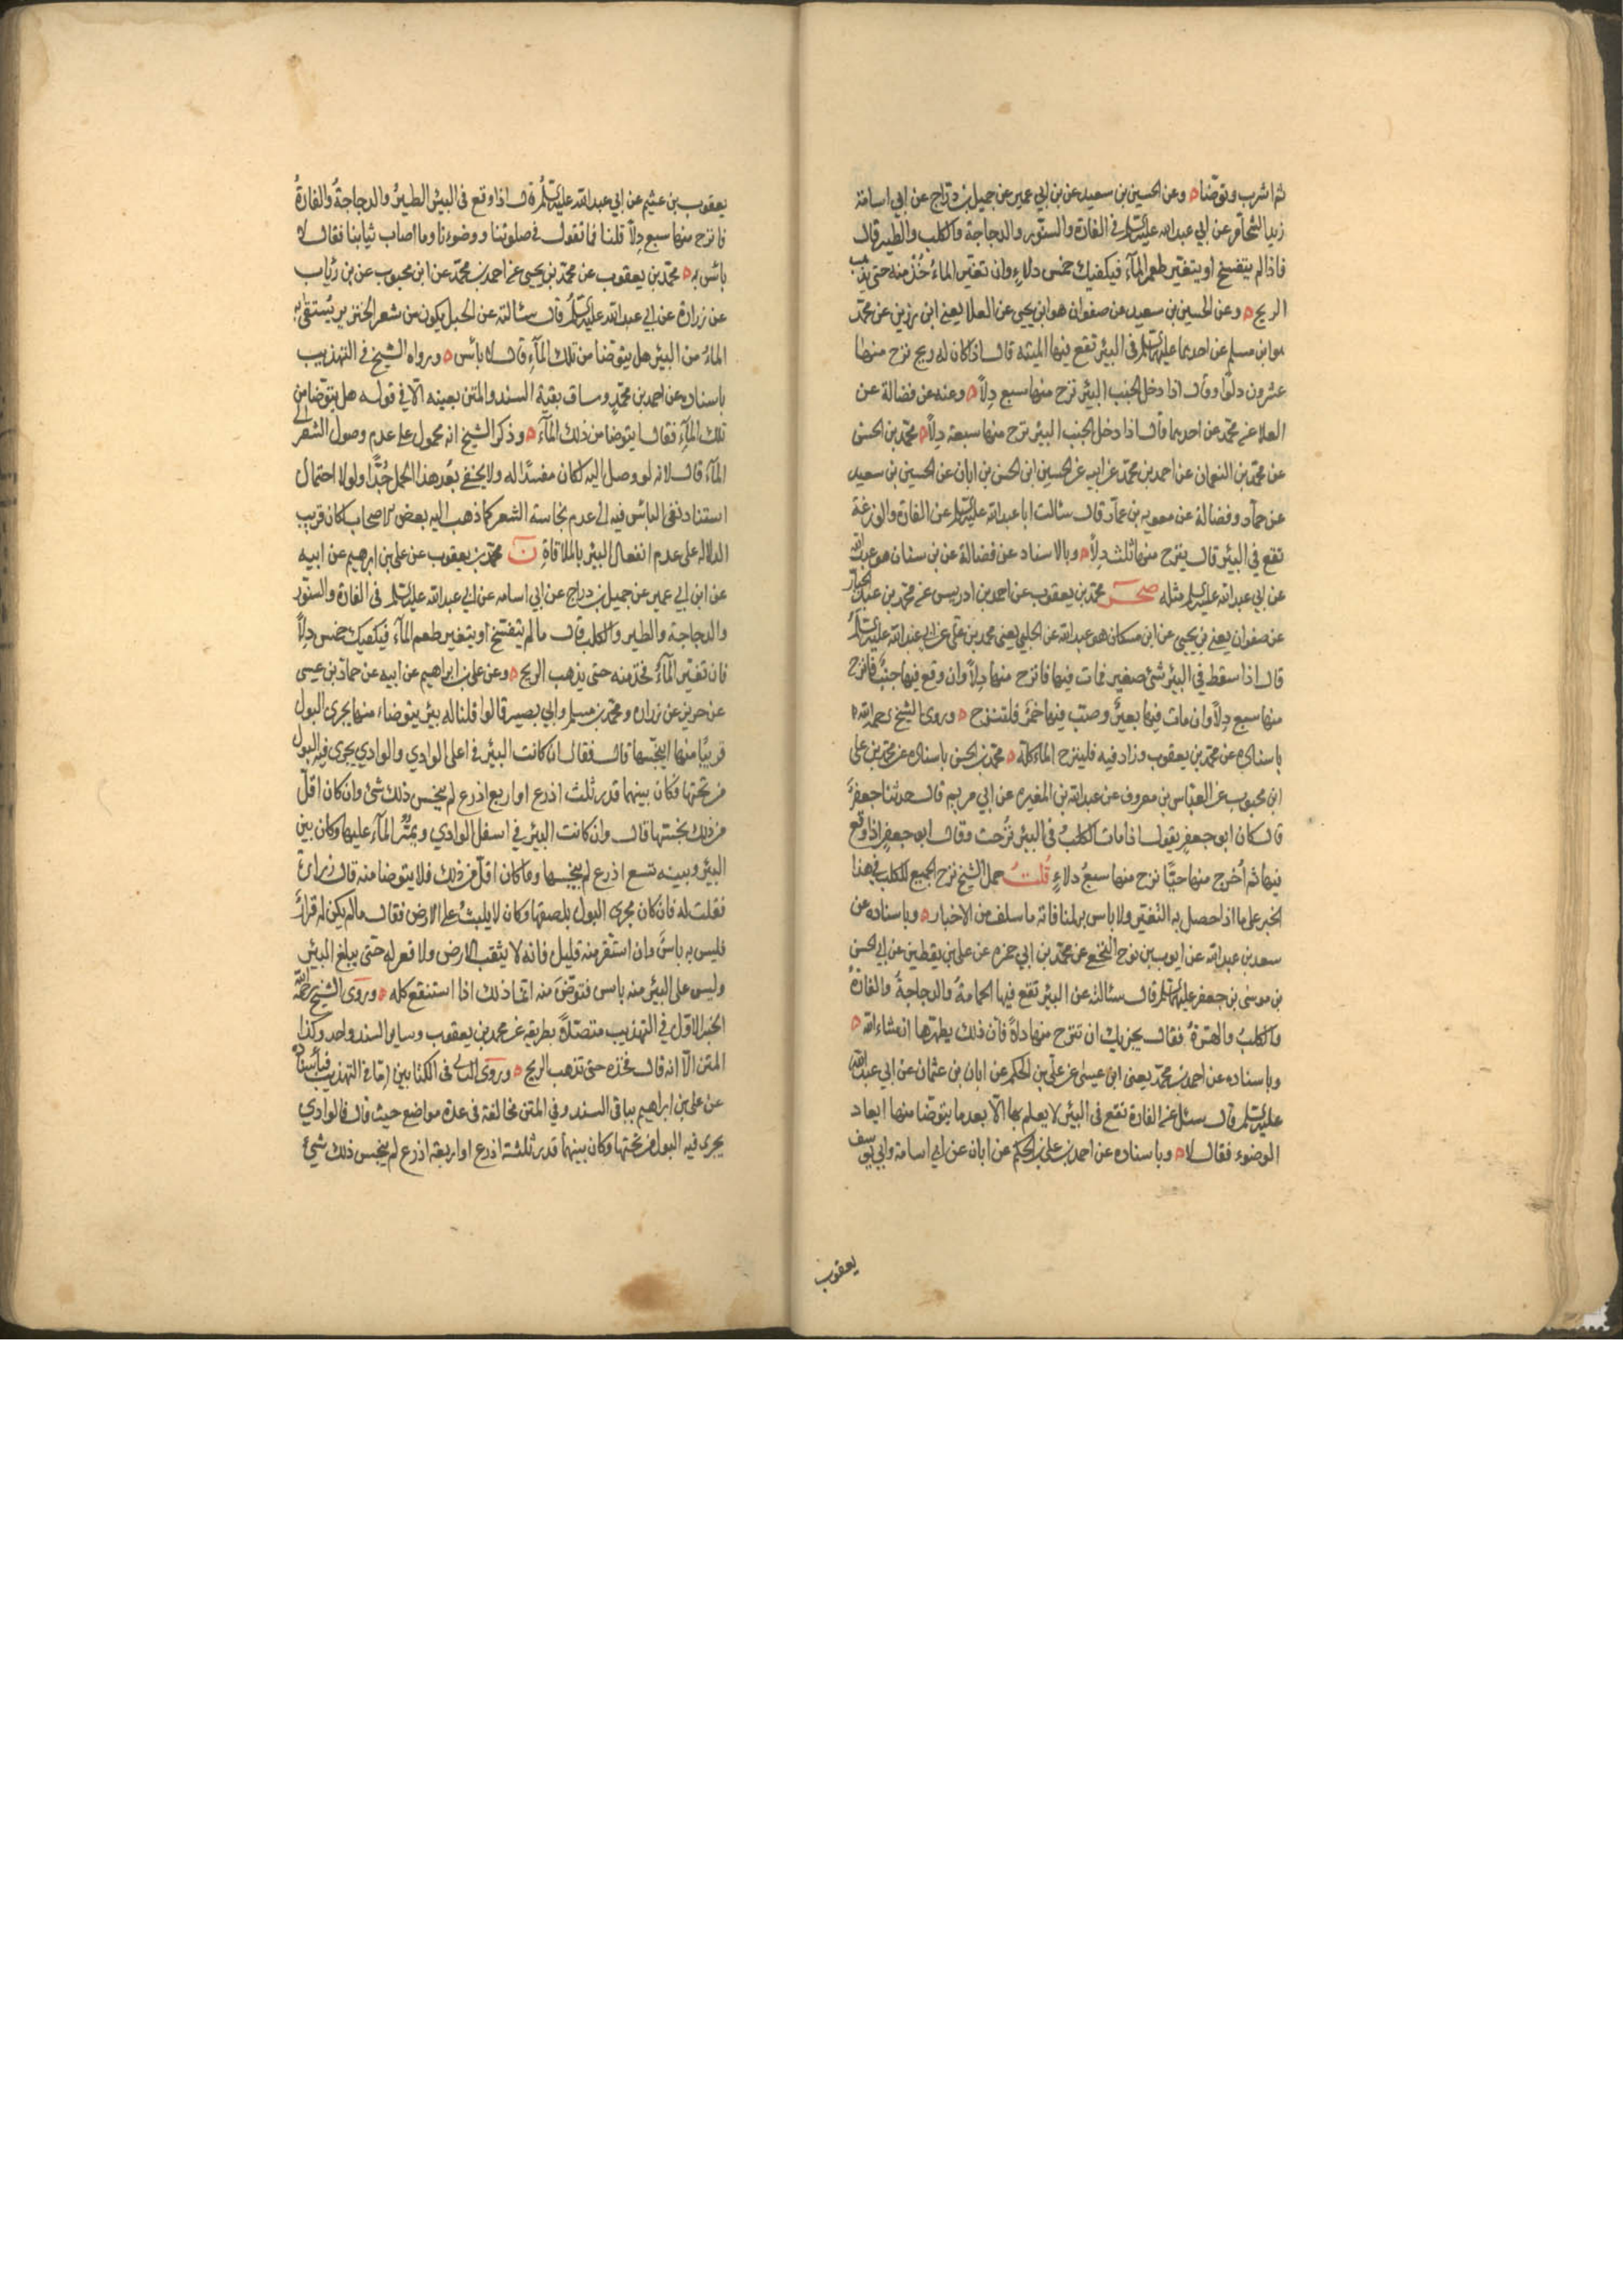 ثم اشرب وتوضّا ه وعن الحسين بن سعيد عن بن ابي عمير عن جميل بن درّاج عن ابي اسامة
زيد الشحّام عن ابي عبد الله عليه السلم في الفارة والسنّور والدجاجة والكلب والطير قال
فاذا لم يتفسخ او يتغيّر طعم المآء فيكفيك خمس دلاءٍ وان تغيّر الماءُ خُذ منه حتى يذهب
الريح ه وعن الحسين بن سعيد عن صفوان هو ابن يحيى عن العلا يعني ابن رزين عن محمّد
هو ابن مسلم عن احدهما عليهما السلم في البئر تقع فيها الميتة قال اذا كان له ريح نزح منها
عشرون دلوًا وقال اذا دخل الجنب البئر نزح منها سبع دِلآً ه وعنه عن فضالة عن
العلا عن محمّد عن احدهما قال اذا دخل الجنب البئر نزح منها سبعة دِلآً ه محمّد بن الحسن
عن محمّد بن النعمان عن احمد بن محمّد عن ابيه عن الحسين ابن الحسن بن ابان عن الحسين بن سعيد
عن حمّاد وفضالة عن معويه بن عمّار قال سئالت ابا عبد الله عليه السلم عن الفارة والوزغة
تقع في البئر قال ينزح منها ثلث دِلآً ه وبالاسناد عن فضالة عن بن سنان هو عبد الله
عن ابي عبد الله عليه السلم مثله صحر محمّد بن يعقوب عن احمد بن ادريس عن محمّد بن عبد الجبار
عن صفوان يعني بن يحيى عن ابن مسكان هو عبد الله عن الحلبي يعني محمد بن علي عن ابي عبد الله عليه السلم
قال اذا سقط في البئر شئ صغير فمات فيها فانزح منها دِلآً وان وقع فيها جنبٌ فانزح
منها سبع دِلآً وان مات فيها بعيرٌ وصبّ فيها خمرٌ فلتنزح ه وروى الشيخ رحمه الله
باسناده عن محمّد بن يعقوب وزاد فيه فلينزح الماء كلّه ه محمّد بن الحسن باسناده عن محمّد بن علي
ابن محبوب عن العبّاس بن معروف عن عبد الله بن المغيره عن ابي مريم قال حدثنا جعفرٌ
قال كان ابو جعفر يقول اذا مات الكلبُ في البئر نزُحت وقال ابو جعفرٍ اذا وقع
فيها ثم اُخرج منها حيًّا نزح منها سبعُ دلاءٍ قُلتُ حمل الشيخ نزح الجميع للكلب في هذا
الخبر على ما اذا حصل به التغيّر ولا باس به لمنافاته ما سلف من الاخبار ه وباسناده عن
سعد بن عبد الله عن ايوب بن نوح النخعي عن محمّد بن ابي حمزه عن علي بن يقطين عن ابي الحسن
بن موسى بن جعفر عليهما السلم قال سئالته عن البئر تقع فيها الحمامةُ والدجاجةُ والفارةُ
والكلبُ والهرّةُ فقال يجزيك ان تنزح منها دلآءً فان ذلك يطهّرها انشاء الله ه
وباسناده عن احمد بن محمّد يعنى ابن عيسى عن علي بن الحكم عن ابان بن عثمان عن ابي عبد الله
عليه السلم قال سئل عن الفارة تقع في البئر لا يعلم بها الآ بعد ما يتوضّا منها ايعاد
الوضوء فقال لا ه وباسناده عن احمد بن علي بن الحكم عن ابان عن ابي اسامة وابي يوسف
يعقوب
يعقوب بن عثيم عن ابي عبد الله عليه السلم قال اذا وقع في البئر الطيرُ والدجاجةُ والفارةُ
فانزح منها سبع دِلآً قلنا فما تقول في صلوتنا ووضوءنا وما اصاب ثيابنا فقال لا
باس به ه محمّد بن يعقوب عن محمّد بن يحيى عن احمد بن محمّد عن ابن محبوب عن بن رئاب
عن زرارة عن ابي عبد الله عليه السلم قال سئالته عن الحبل يكون من شعر الخنزير يُستقى به
الماءُ من البئر هل يتوضّا من تلك المآء قال لا بائس ه ورواه الشيخ في التهذيب
باسناده عن احمد بن محمّدٍ وساق بقية السند والمتن بعينه الّا في قوله هل يتوضّا من
تلك المآء فقال ايتوضا من ذلك المآء ه وذكر الشيخ انه محمول على عدم وصول الشعر الى
المآء قال لانه لو وصل اليه لكان مفسدًا له ولا يخفى بُعد هذا الحمل جُدًّا ولولا احتمال
استناد نفى البائس فيه الى عدم نجاسة الشعر كما ذهب اليه بعض الاصحاب لكان قريب
الدلاله على عدم انفعال البئر بالملاقاةِ ن محمّد بن يعقوب عن علي بن ابرهيم عن ابيه
عن ابن ابي عمير عن جميل بن دراج عن ابي اسامه عن ابي عبد الله عليه السلم في الفارة والسنّور
والدجاجة والطير والكلب قال ما لم يتفسّخ او يتغير طعم المآء فيكفيك خمس دِلآً
فان تغيّر المآءُ فخذ منه حتى يذهب الريح ه وعن علي بن ابراهيم عن ابيه عن حماد بن عيسى
عن حريز عن زراره ومحمّد بن مسلم وابي بصير قالوا قلنا له بئر يتوضاء منها يجرى البول
قريبًا منها اينجّسها قال فقال ان كانت البئر في اعلى الوادي والوادي يجرى فيه البول
من تحتها وكان بينهما قدر ثلث اذرع او اربع اذرع لم ينجس ذلك شئ وان كان اقلّ
من ذلك نجستها قال وان كانت البئر في اسفل الوادي ويمرُّ المآء عليها وكان بين
البئر وبينه تسع اذرع لم ينجسها وما كان اقلّ من ذلك فلا يتوضا منه قال زرارة
فقلت له فان كان مجرى البول بلصقها وكان لا يلبثُ على الارض فقال ما لم يكن له قرارٌ
فليس به باسٌ وان استقر منه قليل فانه لا يثقب الارض ولا قعر له حتّى يبلغ البئر
وليس على البئر منه باس فتوضّ منه انّما ذلك اذا استنقع كله ه وروى الشيخ رحمه الله
الخبر الاوّل في التهذيب متصلاً بطريقه عن محمد بن يعقوب وساير السند واحد وكذا
المتن الّا انه قال فخذه حتى تذهب الريح ه وروى الثاني في الكتابين امّا في التهذيب فباسناده
عن علي بن ابراهيم بباقى السند وفي المتن مخالفة في عدة مواضع حيث قال فالوادي
يجرى فيه البول من تحتها وكان بينهما قدر ثلثة اذرع او اربعة اذرع لم ينجس ذلك شئ